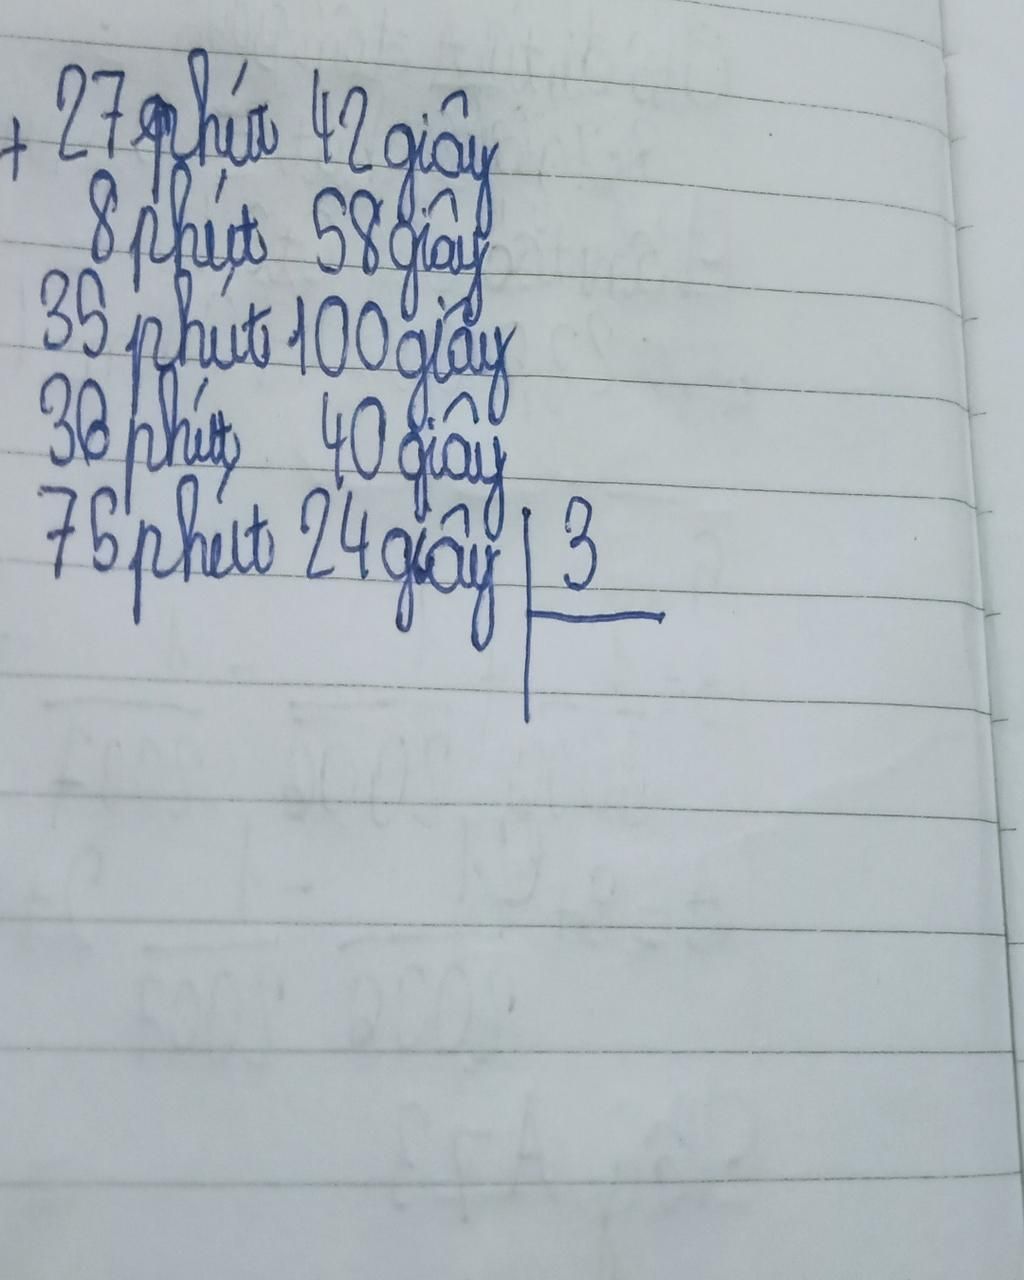 + 27 phút 42 giây
8 phút 58 giây
35 phút 100 giây
36 phút 40 giây
75 phút 24 giây | 3